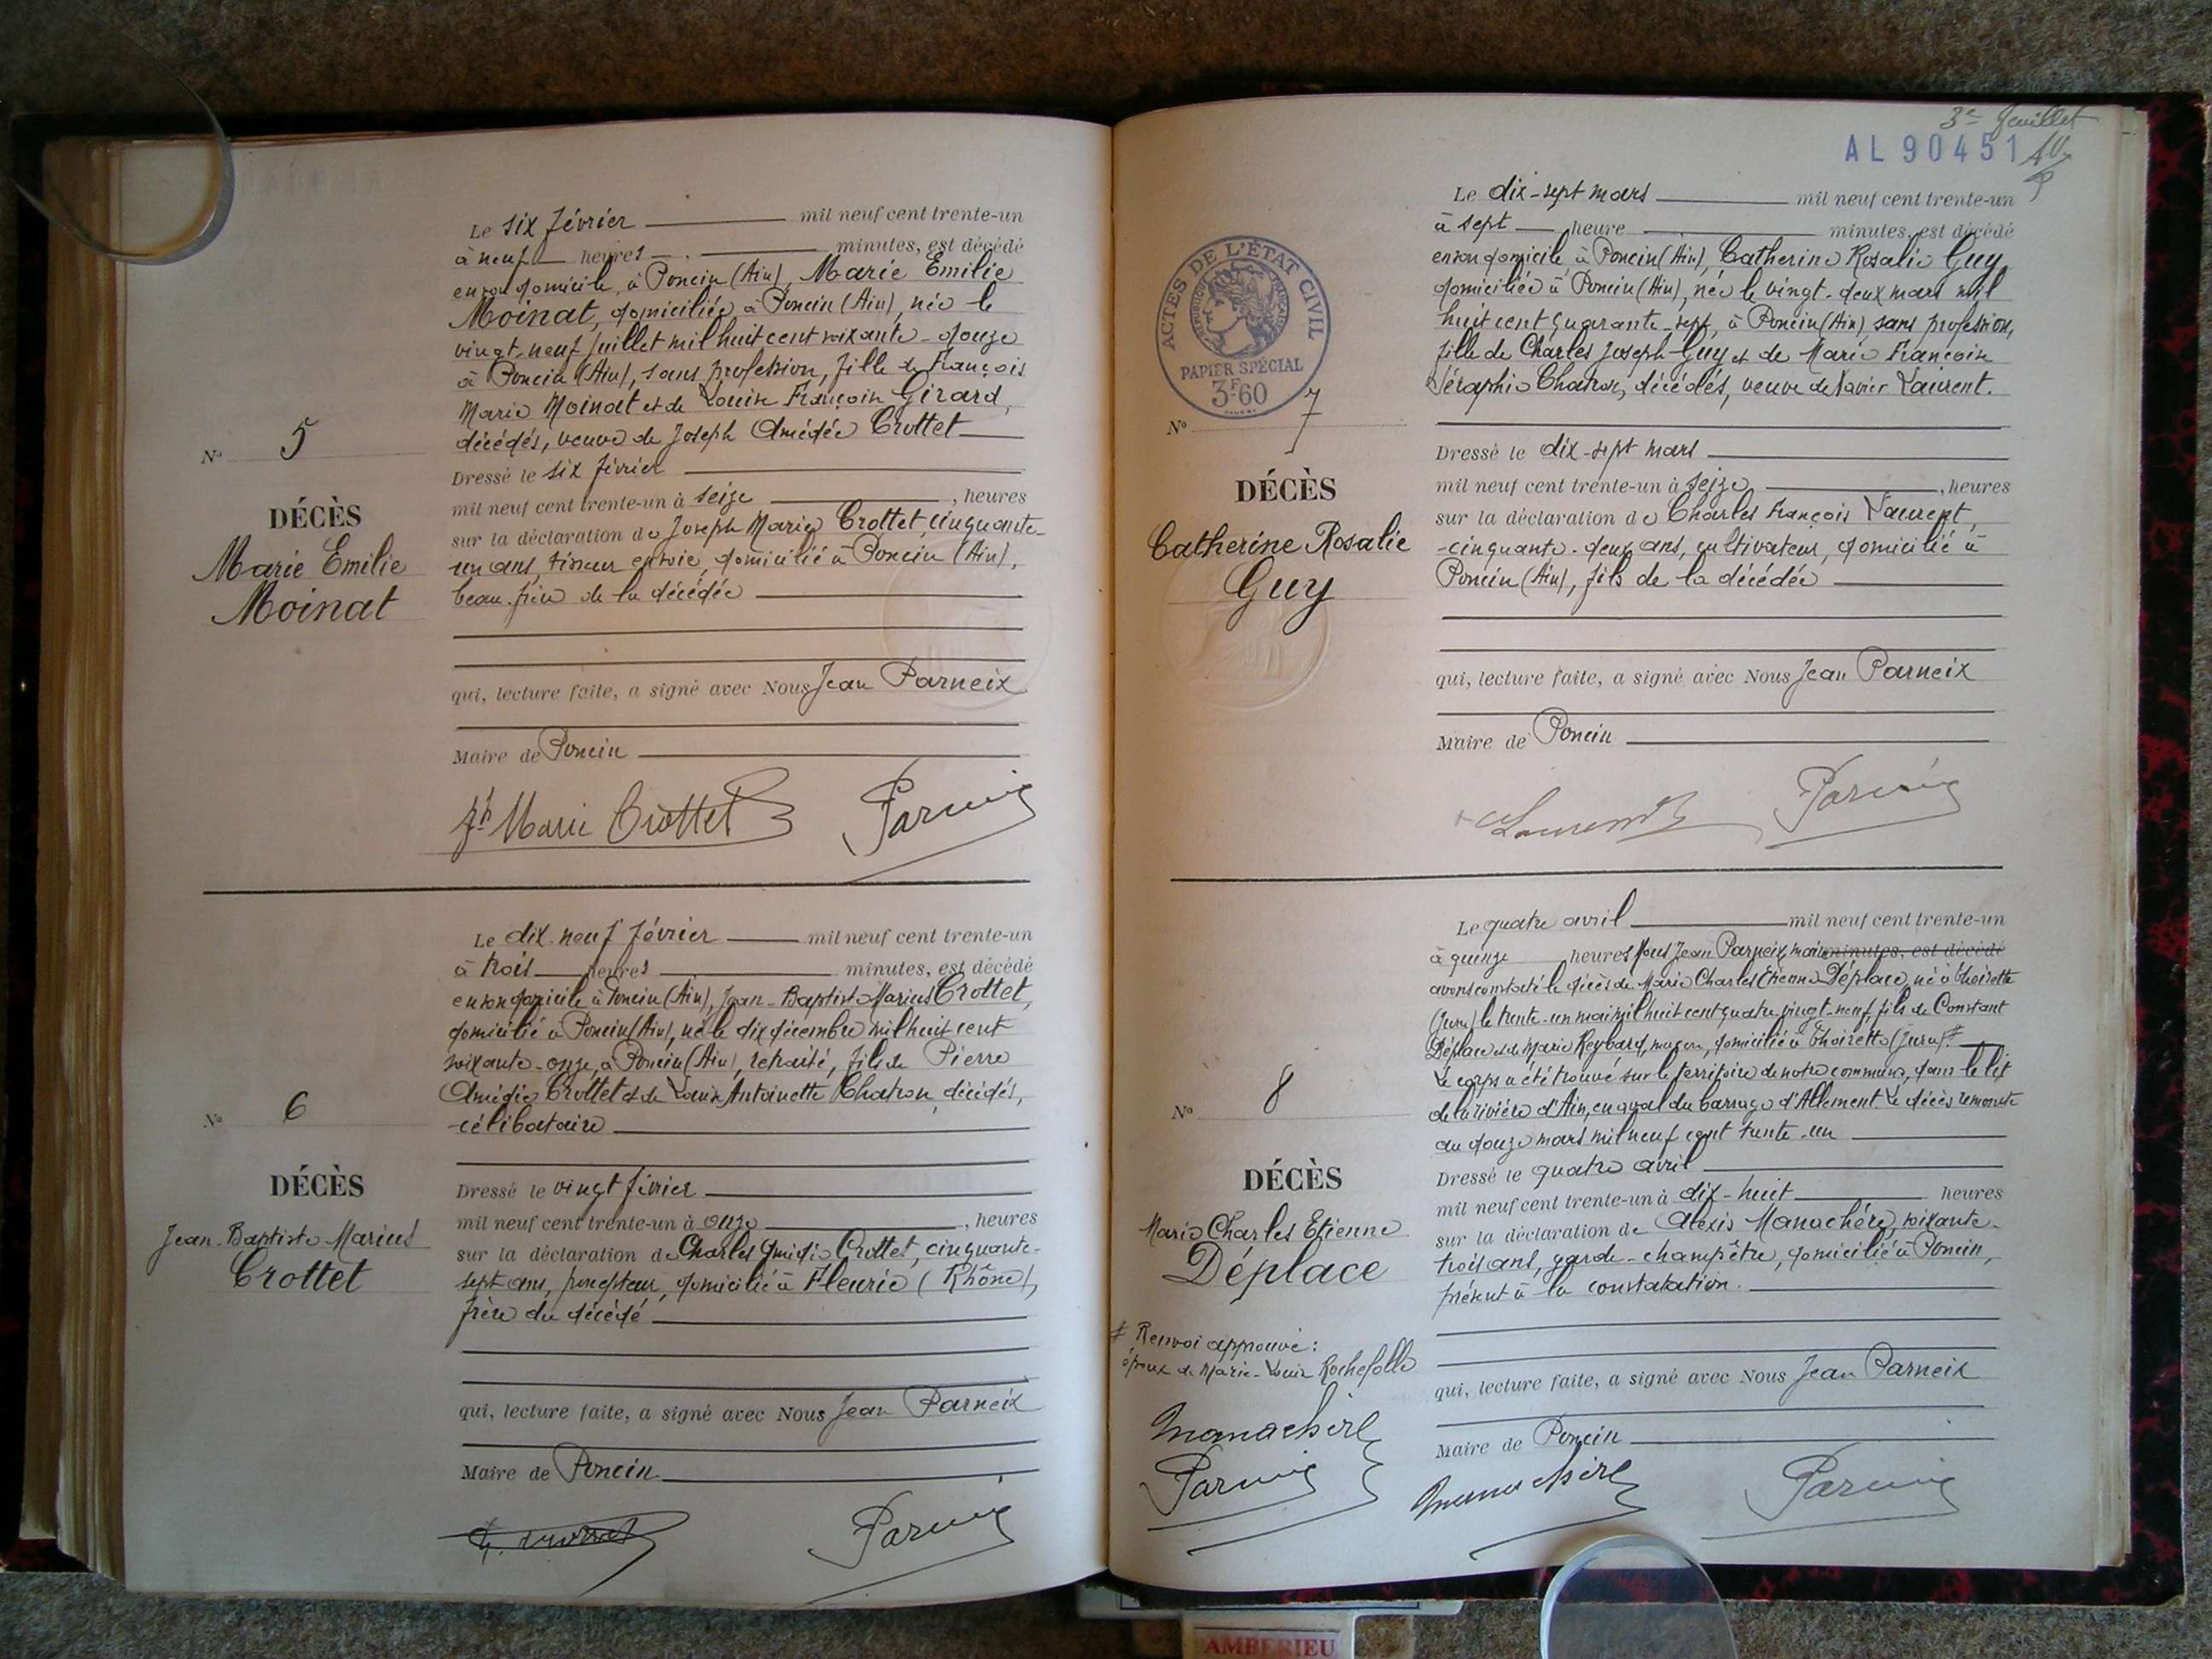 Le six février mil neuf cent trente-un
à neuf heures minutes, est décédé
en son domicile, à Poncin (Ain), Marie Emilie
Moinat, domiciliée à Poncin (Ain), née le
vingt-neuf juillet mil huit cent soixante-douze
à Poncin (Ain), sans profession, fille de François
Marie Moinat et de Louise Françoise Girard,
décédés, veuve de Joseph Amédée Crottet
N° 5
Dressé le six février
mil neuf cent trente-un à seize , heures
sur la déclaration de Joseph Marie Crottet, cinquante-
un ans, tisseur en soie, domicilié à Poncin (Ain),
beau-frère de la décédée
DÉCÈS
Marie Emilie
Moinat
qui, lecture faite, a signé avec Nous Jean Parneix
Maire de Poncin
Jh Marie Crottet Parneix
Le dix-neuf février mil neuf cent trente-un
à trois heures minutes, est décédé
en son domicile à Poncin (Ain), Jean-Baptiste Marius Crottet,
domicilié à Poncin (Ain), né le dix décembre mil huit cent
soixante-onze, à Poncin (Ain), retraité, fils de Pierre
Amédée Crottet et de Louise Antoinette Chatron, décédés,
célibataire
N° 6
DÉCÈS
Jean-Baptiste Marius
Crottet
Dressé le vingt février
mil neuf cent trente-un à onze , heures
sur la déclaration de Charles Amédée Crottet, cinquante-
sept ans, percepteur, domicilié à Fleurie (Rhône),
frère du décédé
qui, lecture faite, a signé avec Nous Jean Parneix
Maire de Poncin
Parneix
3e feuillet
AL 90451
ACTES DE L'ÉTAT CIVIL
RÉPUBLIQUE FRANÇAISE
PAPIER SPÉCIAL
3F60
Le dix-sept mars mil neuf cent trente-un
à sept heure minutes, est décédé
en son domicile à Poncin (Ain), Catherine Rosalie Guy,
domiciliée à Poncin (Ain), née le vingt-deux mars mil
huit cent quarante-sept, à Poncin (Ain), sans profession,
fille de Charles Joseph Guy et de Marie Françoise
Séraphie Chatron, décédés, veuve de Xavier Laurent.
N° 7
DÉCÈS
Catherine Rosalie
Guy
Dressé le dix-sept mars
mil neuf cent trente-un à seize , heures
sur la déclaration de Charles François Laurent,
cinquante-deux ans, cultivateur, domicilié à
Poncin (Ain), fils de la décédée
qui, lecture faite, a signé avec Nous Jean Parneix
Maire de Poncin
Laurent Parneix
Le quatre avril mil neuf cent trente-un
à quinze heures Nous Jean Parneix, maire minutes, est décédé
avons constaté le décès de Marie Charles Etienne Déplace, né à Thoirette
(Jura) le trente-un mai mil huit cent quatre vingt-neuf, fils de Constant
Déplace et de Marie Reybard, maçon, domicilié à Thoirette (Jura) #
Le corps a été trouvé sur le territoire de notre commune, dans le lit
de la rivière d'Ain, en aval du barrage d'Allement. Le décès remonte
au douze mars mil neuf cent trente-un
N° 8
DÉCÈS
Marie Charles Etienne
Déplace
Dressé le quatre avril
mil neuf cent trente-un à dix-huit heures
sur la déclaration de Alexis Manachère, soixante-
trois ans, garde-champêtre, domicilié à Poncin,
présent à la constatation.
# Renvoi approuvé:
époux de Marie-Louise Rochefolle
Manachère
Parneix
qui, lecture faite, a signé avec Nous Jean Parneix
Maire de Poncin
Manachère Parneix
AMBERIEU